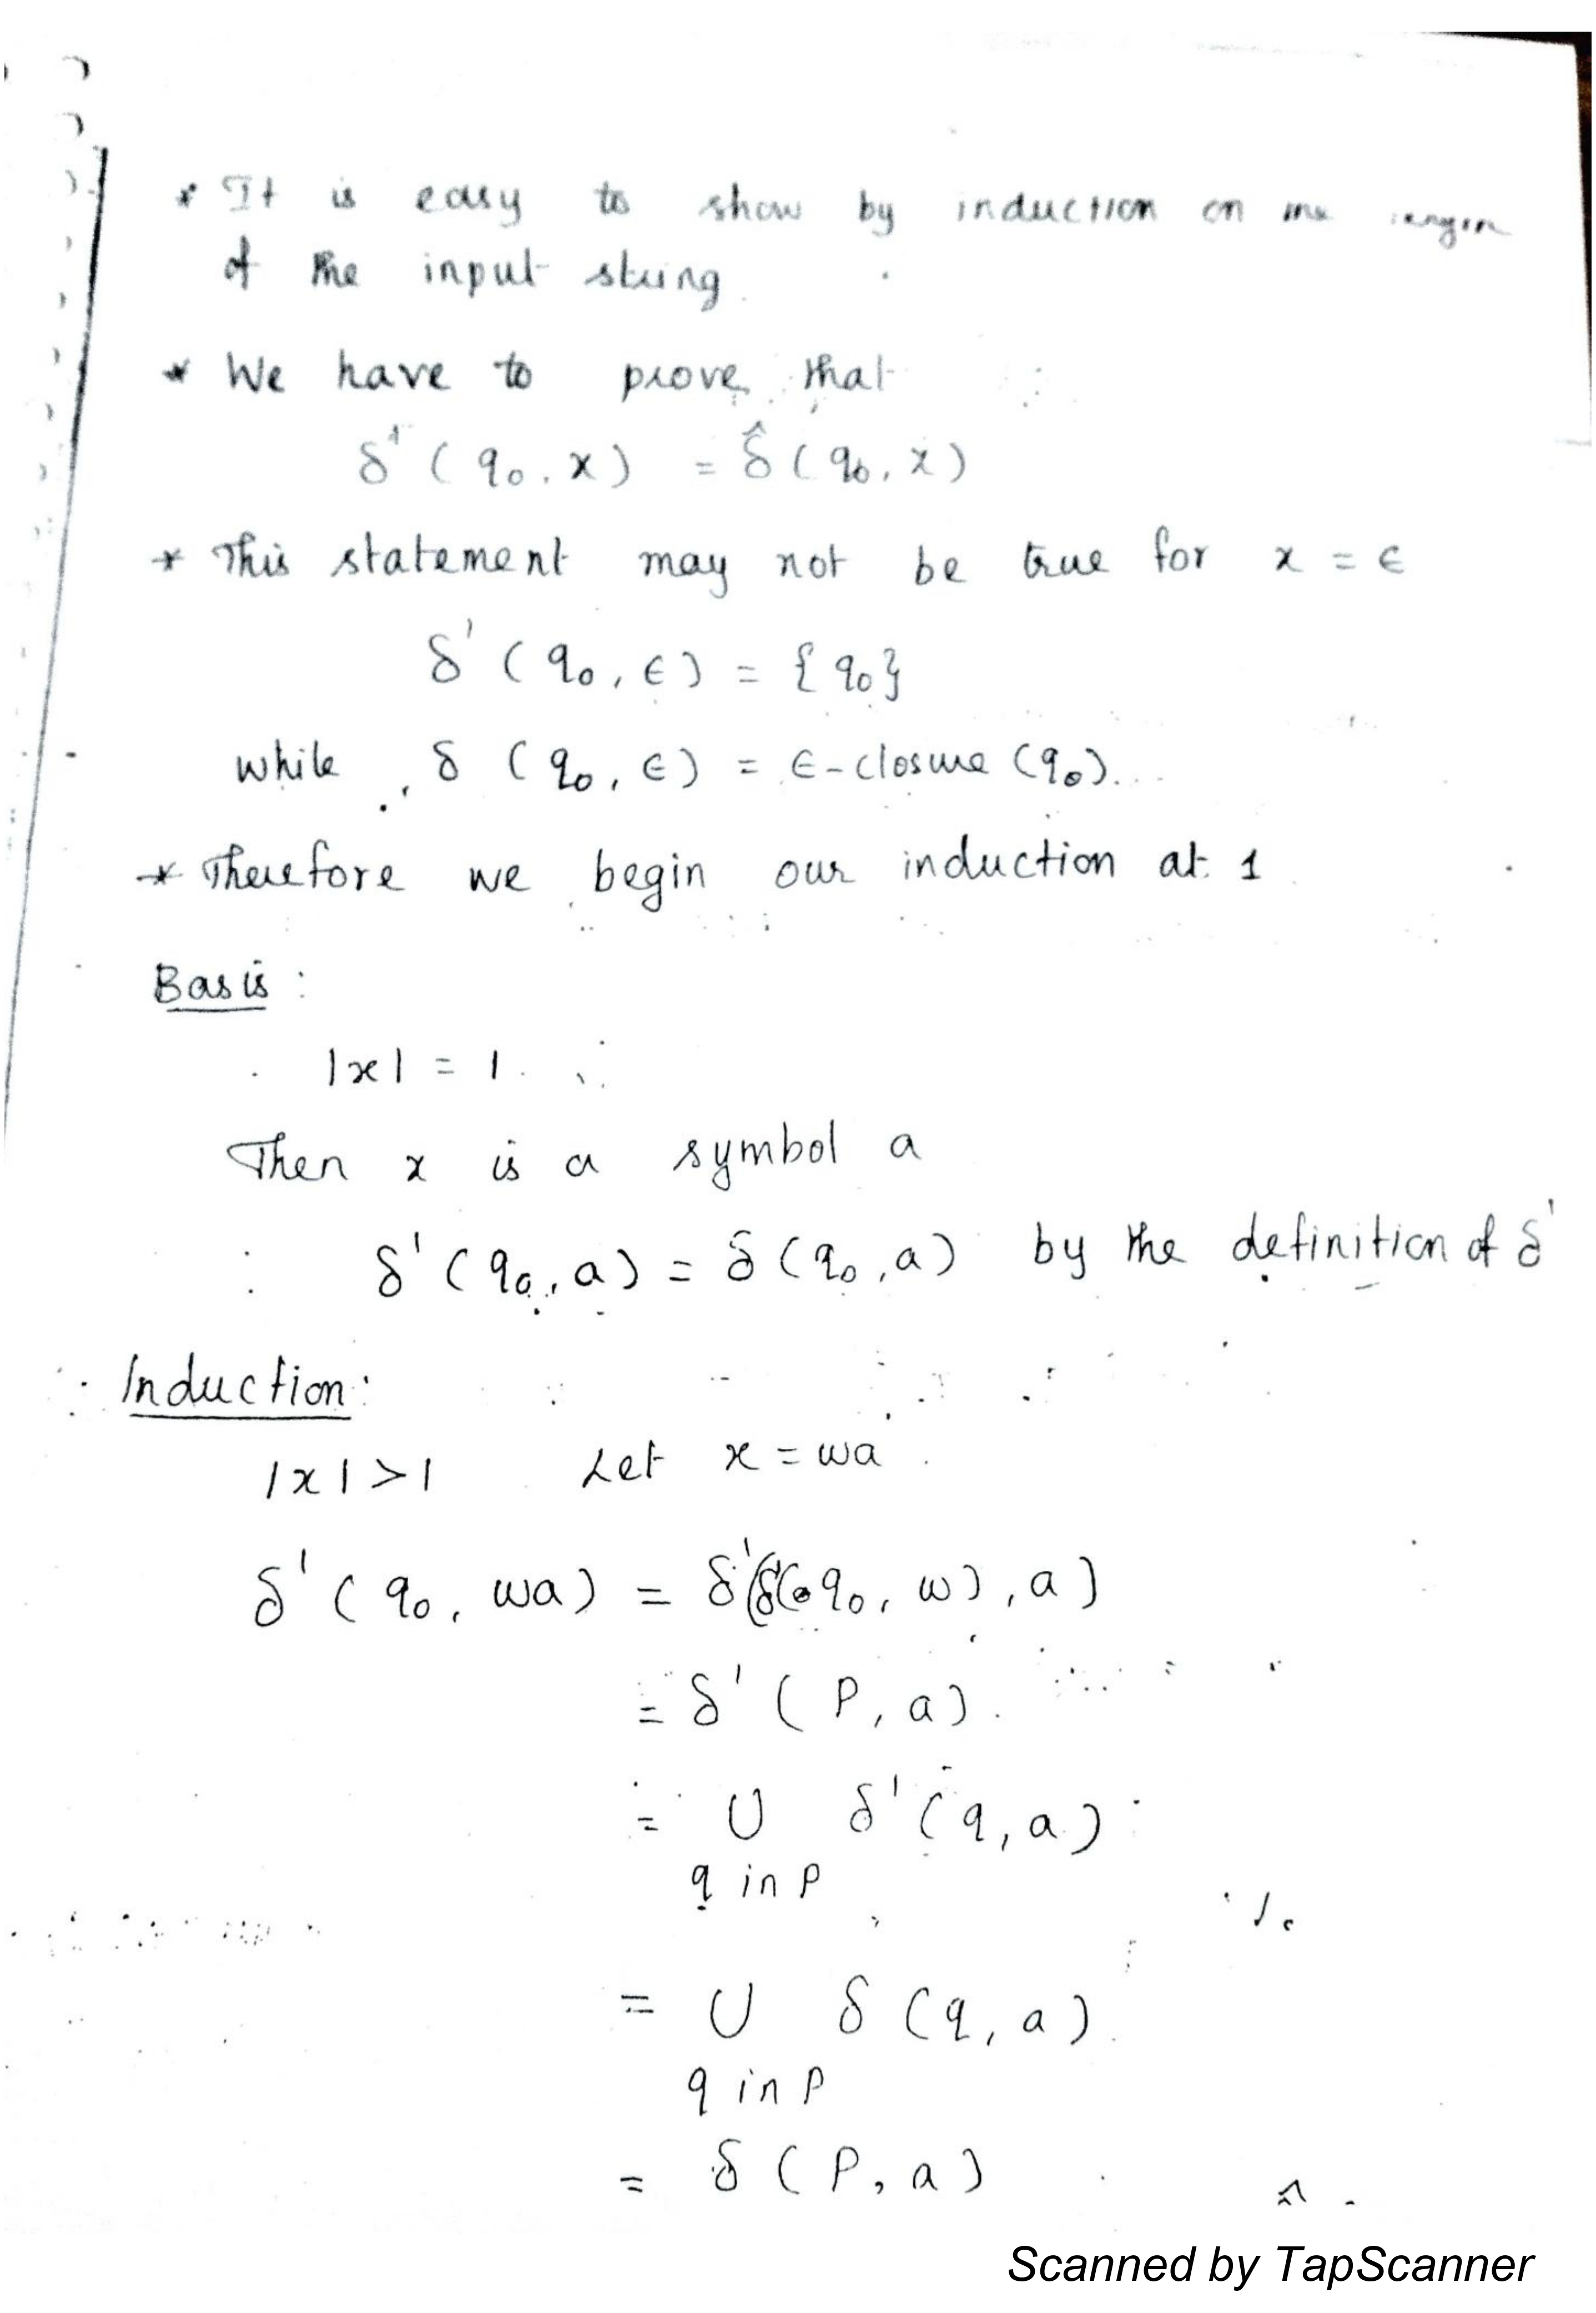 * It is easy to show by induction on the length
of the input string.
* We have to prove that
δ' (q₀, x) = δ̂ (q₀, x)
* This statement may not be true for x = ϵ
δ' (q₀, ϵ) = {q₀}
while, δ (q₀, ϵ) = ϵ-closure (q₀).
* Therefore we begin our induction at 1
Basis :
|x| = 1.
Then x is a symbol a
∴ δ' (q₀, a) = δ̂ (q₀, a) by the definition of δ'
Induction:
|x| > 1 Let x = wa
δ' (q₀, wa) = δ'(δ'(q₀, w), a)
= δ' (P, a).
= ∪ δ' (q, a)
q in P
= ∪ δ (q, a)
q in P
= δ (P, a)
Scanned by TapScanner